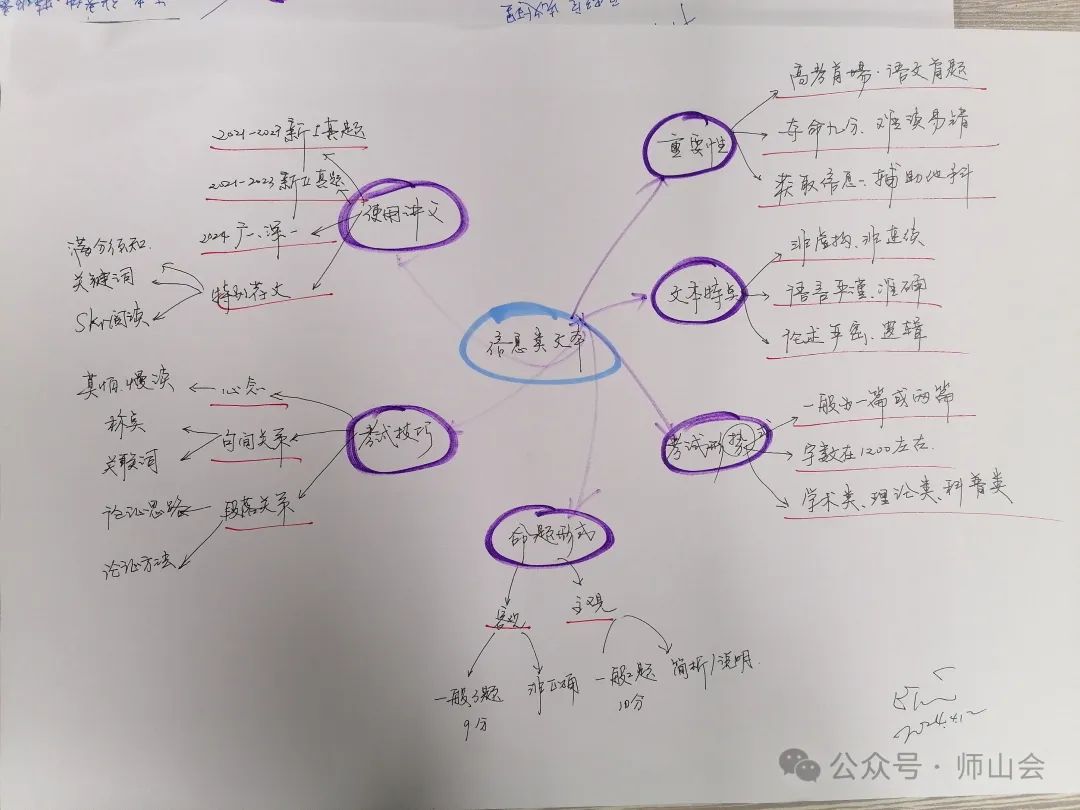 信息类文本
重要性
高考首场·语文首题
夺命九分、难读易错
获取信息、辅助他科
文本特点
非虚构、非连续
语言平实、准确
论述严密、逻辑
考试形式
一般为一篇或两篇
字数在1200左右.
学术类、理论类、科普类
命题形式
客观
一般3题
9分
非正确
主观
一般2题
10分
简析/说明.
考试技巧
心态
莫怕.慢读
句间关系
标点
关联词
段落关系
论证思路
论证方法
使用讲义
2021-2023新Ⅰ真题
2021-2023新Ⅱ真题
2024广一、深一
特别荐文
满分须知.
关键词
阅读
2024.4.12
公众号·师山会